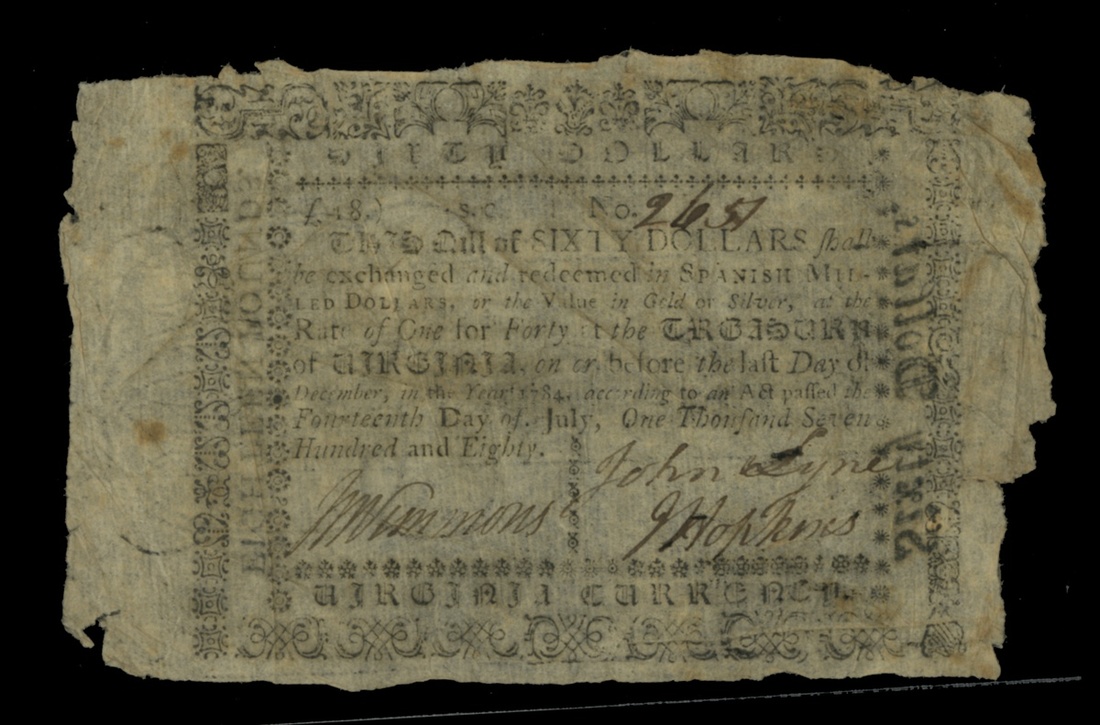 SIXTY DOLLARS
£.18.) s. c. No. 2651
THIS Bill of SIXTY DOLLARS ſhall
be exchanged and redeemed in SPANISH MIL-
LED DOLLARS, or the Value in Gold or Silver, at the
Rate of One for Forty at the TREASURY
of VIRGINIA, on or before the laſt Day of
December, in the Year 1784, according to an Act paſſed the
Fourteenth Day of July, One Thouſand Seven
Hundred and Eighty.
John Lyne
Wm Simmons
J Hopkins
VIRGINIA CURRENCY.
EIGHTEEN POUNDS.
Sixty Dollars